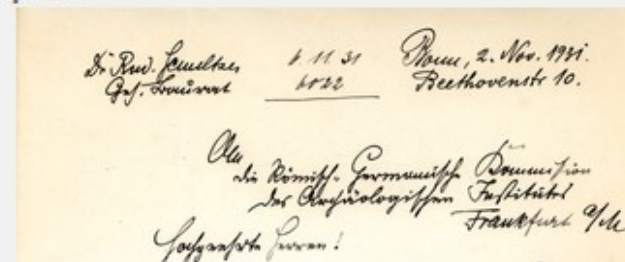 Dr. Rud. Schultze 6 11 31 Bonn, 2. Nov. 1931.
Geh. Baurat 6022 Beethovenstr 10.
An
die Römisch-Germanische Kommission
des Archäologischen Institutes
Frankfurt a/M
Hochgeehrte Herren!